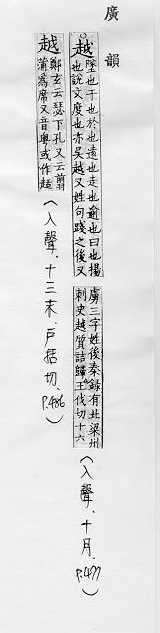 廣韻
越
墜也于也於也遠也走也逾也曰也揚
也說文度也亦吳越又姓句踐之後又
虜三字姓後秦錄有北梁州
刺史越質詰歸王伐切十六
(入聲、十月、P.477)
越
鄭玄云瑟下孔又云翦
蒲爲席又音粤或作趏
(入聲、十三末、戶括切、P.486)